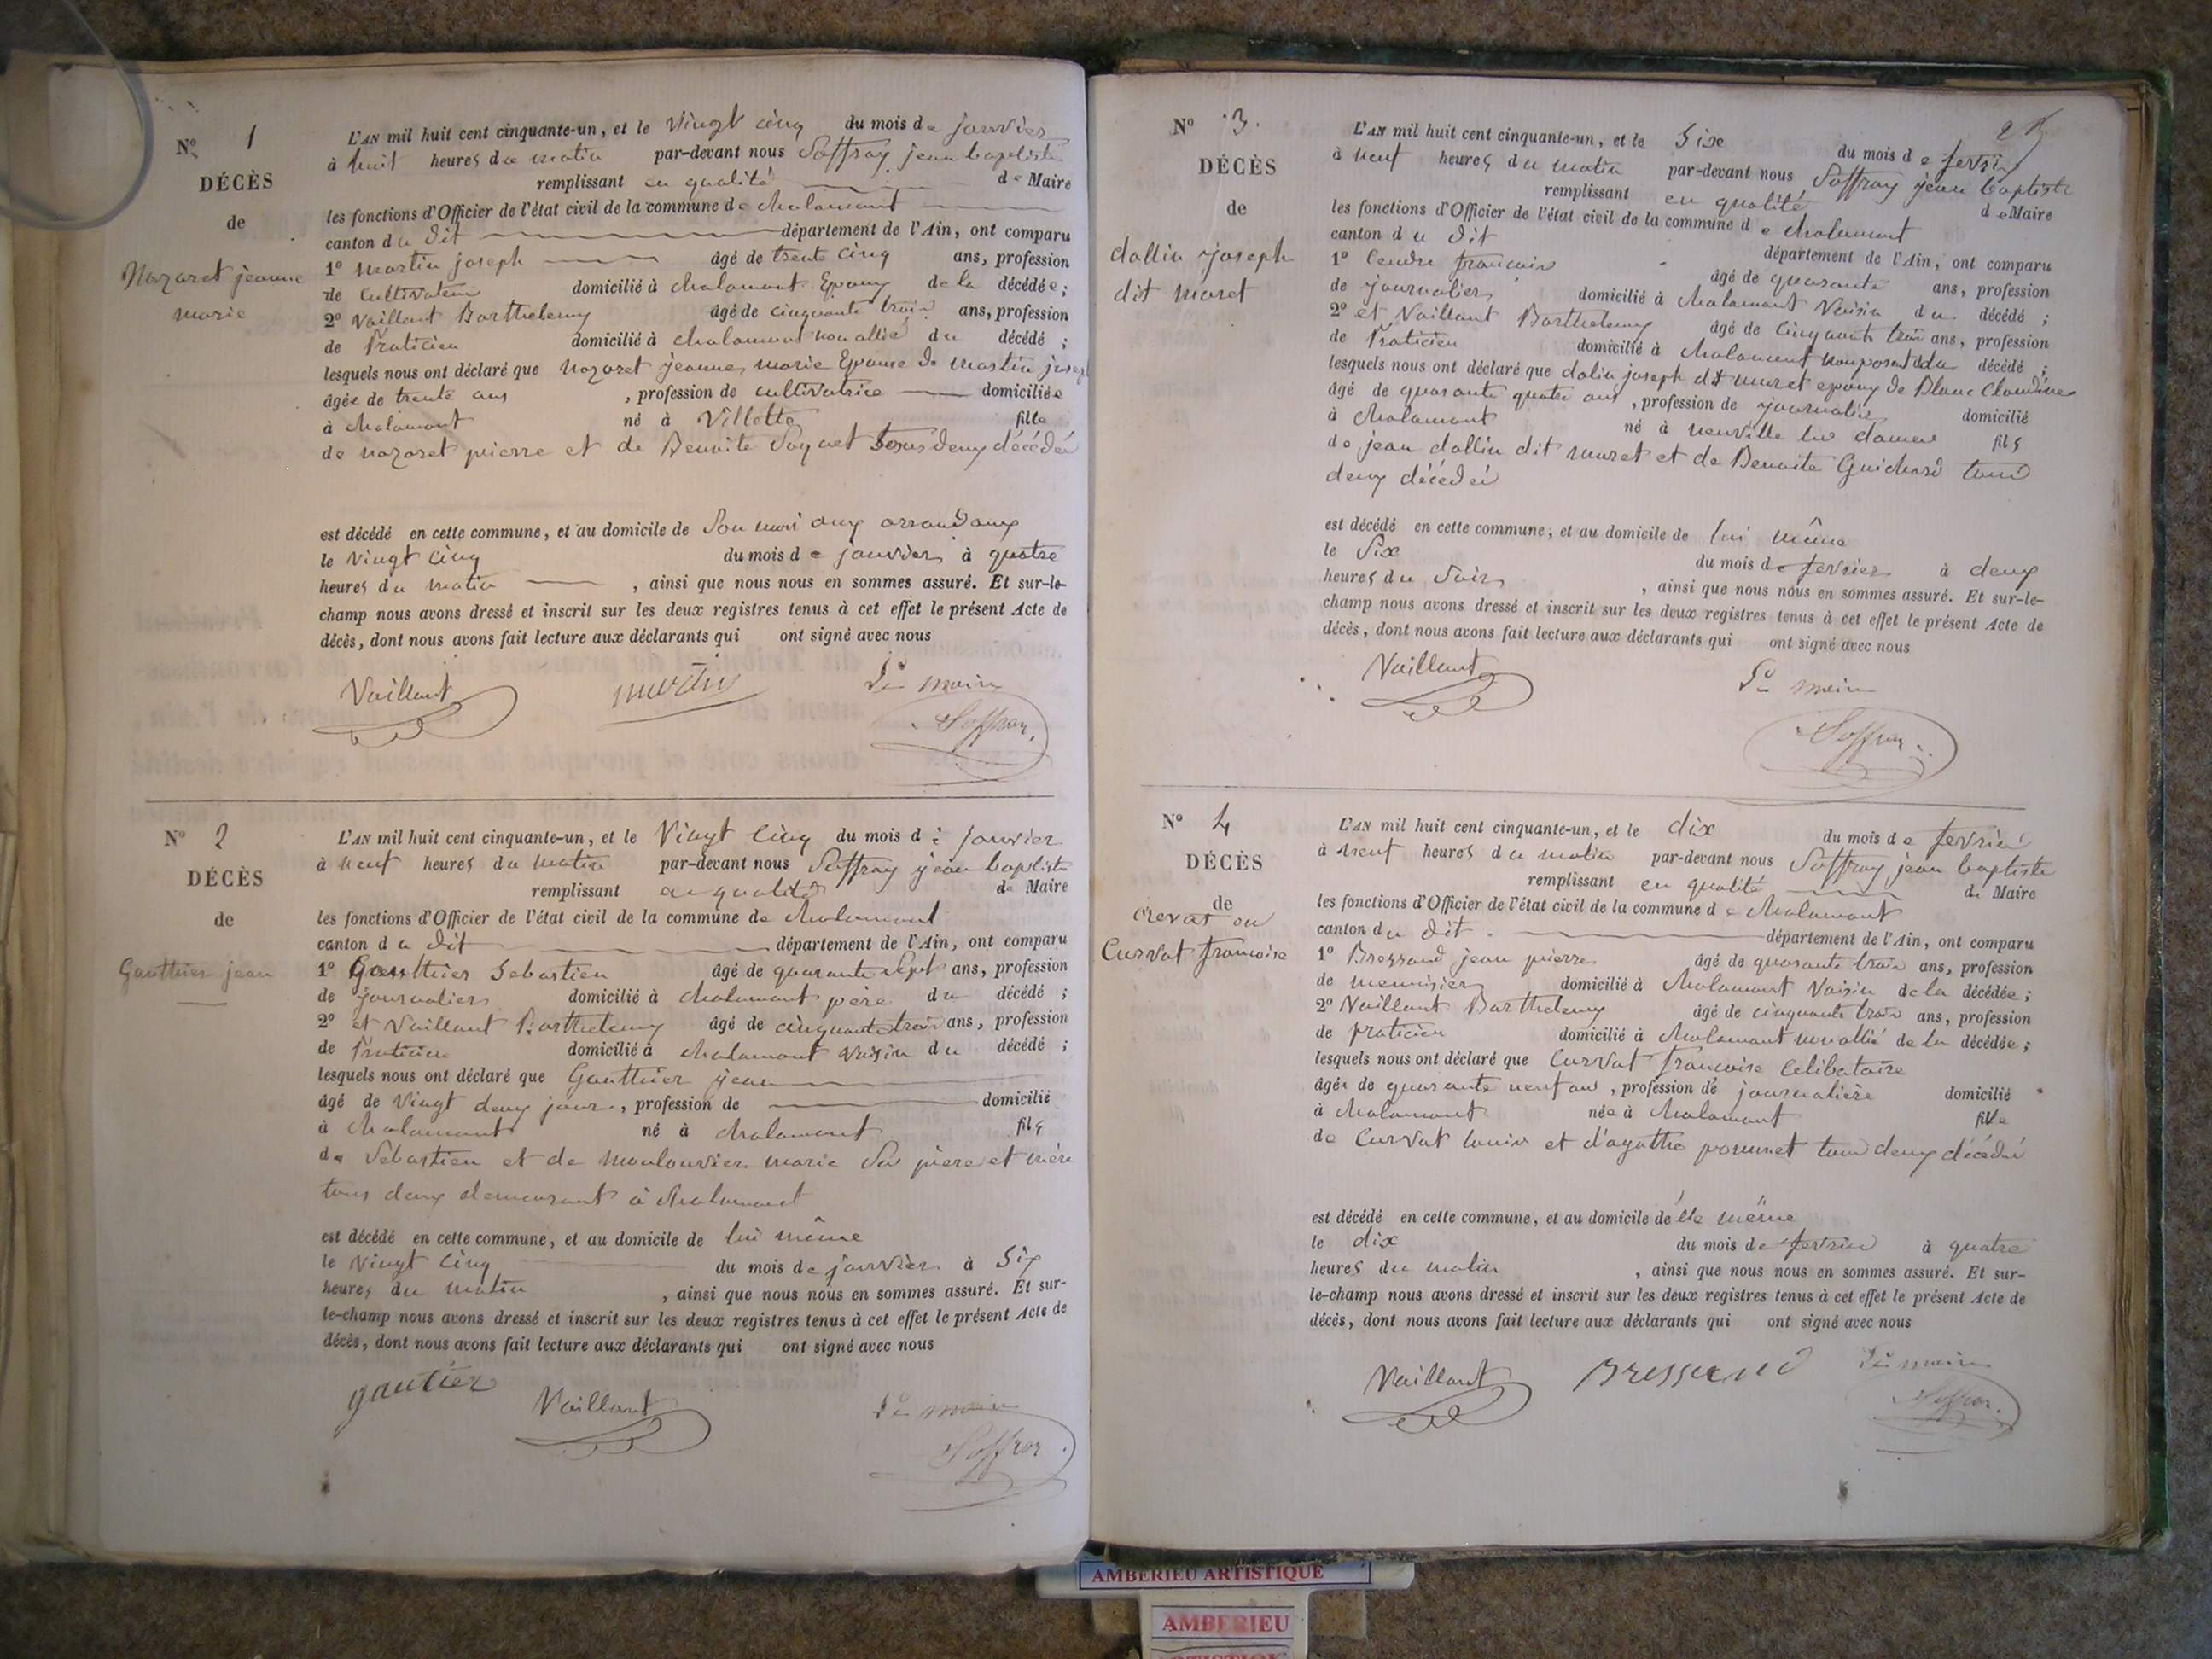 N° 1
DÉCÈS
de
Nazaret jeanne
marie
L'AN mil huit cent cinquante-un, et le Vingt cinq du mois de janvier
à huit heures du matin par-devant nous Soffray jean baptiste
remplissant en qualité de Maire
les fonctions d'Officier de l'état civil de la commune de chalamont
canton du dit département de l'Ain, ont comparu
1° martin joseph âgé de trente cinq ans, profession
de cultivateur domicilié à chalamont Epoux de la décédée;
2° Vaillant Barthelemy âgé de cinquante trois ans, profession
de Praticien domicilié à chalamont non allié du décédé;
lesquels nous ont déclaré que Nazaret jeanne marie Epouse de martin joseph
âgée de trente ans, profession de cultivatrice domiciliée
à chalamont né à Villette fille
de nazaret pierre et de Benoite tous deux décédés
est décédé en cette commune, et au domicile de son mari aux
le Vingt cinq du mois de janvier à quatre
heures du matin, ainsi que nous nous en sommes assuré. Et sur-le-
champ nous avons dressé et inscrit sur les deux registres tenus à cet effet le présent Acte de
décès, dont nous avons fait lecture aux déclarants qui ont signé avec nous
Vaillant martin Le maire
Soffray
N° 2
DÉCÈS
de
Gautthier jean
L'AN mil huit cent cinquante-un, et le Vingt cinq du mois de janvier
à neuf heures du matin par-devant nous Soffray jean baptiste
remplissant en qualité de Maire
les fonctions d'Officier de l'état civil de la commune de chalamont
canton du dit département de l'Ain, ont comparu
1° Gautthier Sebastien âgé de quarante sept ans, profession
de journalier domicilié à chalamont père du décédé;
2° et Vaillant Barthelemy âgé de cinquante trois ans, profession
de Praticien domicilié à chalamont voisin du décédé;
lesquels nous ont déclaré que Gautthier jean
âgé de Vingt deux jours, profession de domicilié
à chalamont né à chalamont fils
de Sébastien et de marie père et mère
tous deux demeurant à chalamont
est décédé en cette commune, et au domicile de lui même
le Vingt cinq du mois de janvier à six
heures du matin, ainsi que nous nous en sommes assuré. Et sur-
le-champ nous avons dressé et inscrit sur les deux registres tenus à cet effet le présent Acte de
décès, dont nous avons fait lecture aux déclarants qui ont signé avec nous
gautier Vaillant Le maire
Soffray
N° 3.
DÉCÈS
de
dallin joseph
dit muret
L'AN mil huit cent cinquante-un, et le Six du mois de fevrier
à neuf heures du matin par-devant nous Soffray jean baptiste
remplissant en qualité de Maire
les fonctions d'Officier de l'état civil de la commune de chalamont
canton du dit département de l'Ain, ont comparu
1° francois âgé de quarante ans, profession
de journalier domicilié à chalamont Voisin du décédé;
2° et Vaillant Barthelemy âgé de cinquante trois ans, profession
de Praticien domicilié à chalamont du décédé;
lesquels nous ont déclaré que dalin joseph dit muret epoux de Blanc Claudine
âgé de quarante quatre ans, profession de journalier domicilié
à chalamont né à neuville les dames fils
de jean dallin dit muret et de Benoite Guichard tous
deux décédés
est décédé en cette commune, et au domicile de lui même
le Six du mois de fevrier à deux
heures du soir, ainsi que nous nous en sommes assuré. Et sur-le-
champ nous avons dressé et inscrit sur les deux registres tenus à cet effet le présent Acte de
décès, dont nous avons fait lecture aux déclarants qui ont signé avec nous
Vaillant Le maire
Soffray
N° 4
DÉCÈS
de
Crevat ou
Curvat francoise
L'AN mil huit cent cinquante-un, et le dix du mois de fevrier
à neuf heures du matin par-devant nous Soffray jean baptiste
remplissant en qualité de Maire
les fonctions d'Officier de l'état civil de la commune de chalamont
canton du dit département de l'Ain, ont comparu
1° Bressand jean pierre âgé de quarante trois ans, profession
de menuisier domicilié à chalamont Voisin de la décédée;
2° Vaillant Barthelemy âgé de cinquante trois ans, profession
de praticien domicilié à chalamont non allié de la décédée;
lesquels nous ont déclaré que Curvat francoise Celibataire
âgée de quarante neuf ans, profession de journalière domicilié
à chalamont née à chalamont fille
de Curvat louis et d'agathe tous deux décédés
est décédé en cette commune, et au domicile de elle même
le dix du mois de fevrier à quatre
heures du matin, ainsi que nous nous en sommes assuré. Et sur-
le-champ nous avons dressé et inscrit sur les deux registres tenus à cet effet le présent Acte de
décès, dont nous avons fait lecture aux déclarants qui ont signé avec nous
Vaillant Bressand Le maire
Soffray
AMBERIEU ARTISTIQUE
AMBERIEU
ARTISTIQUE